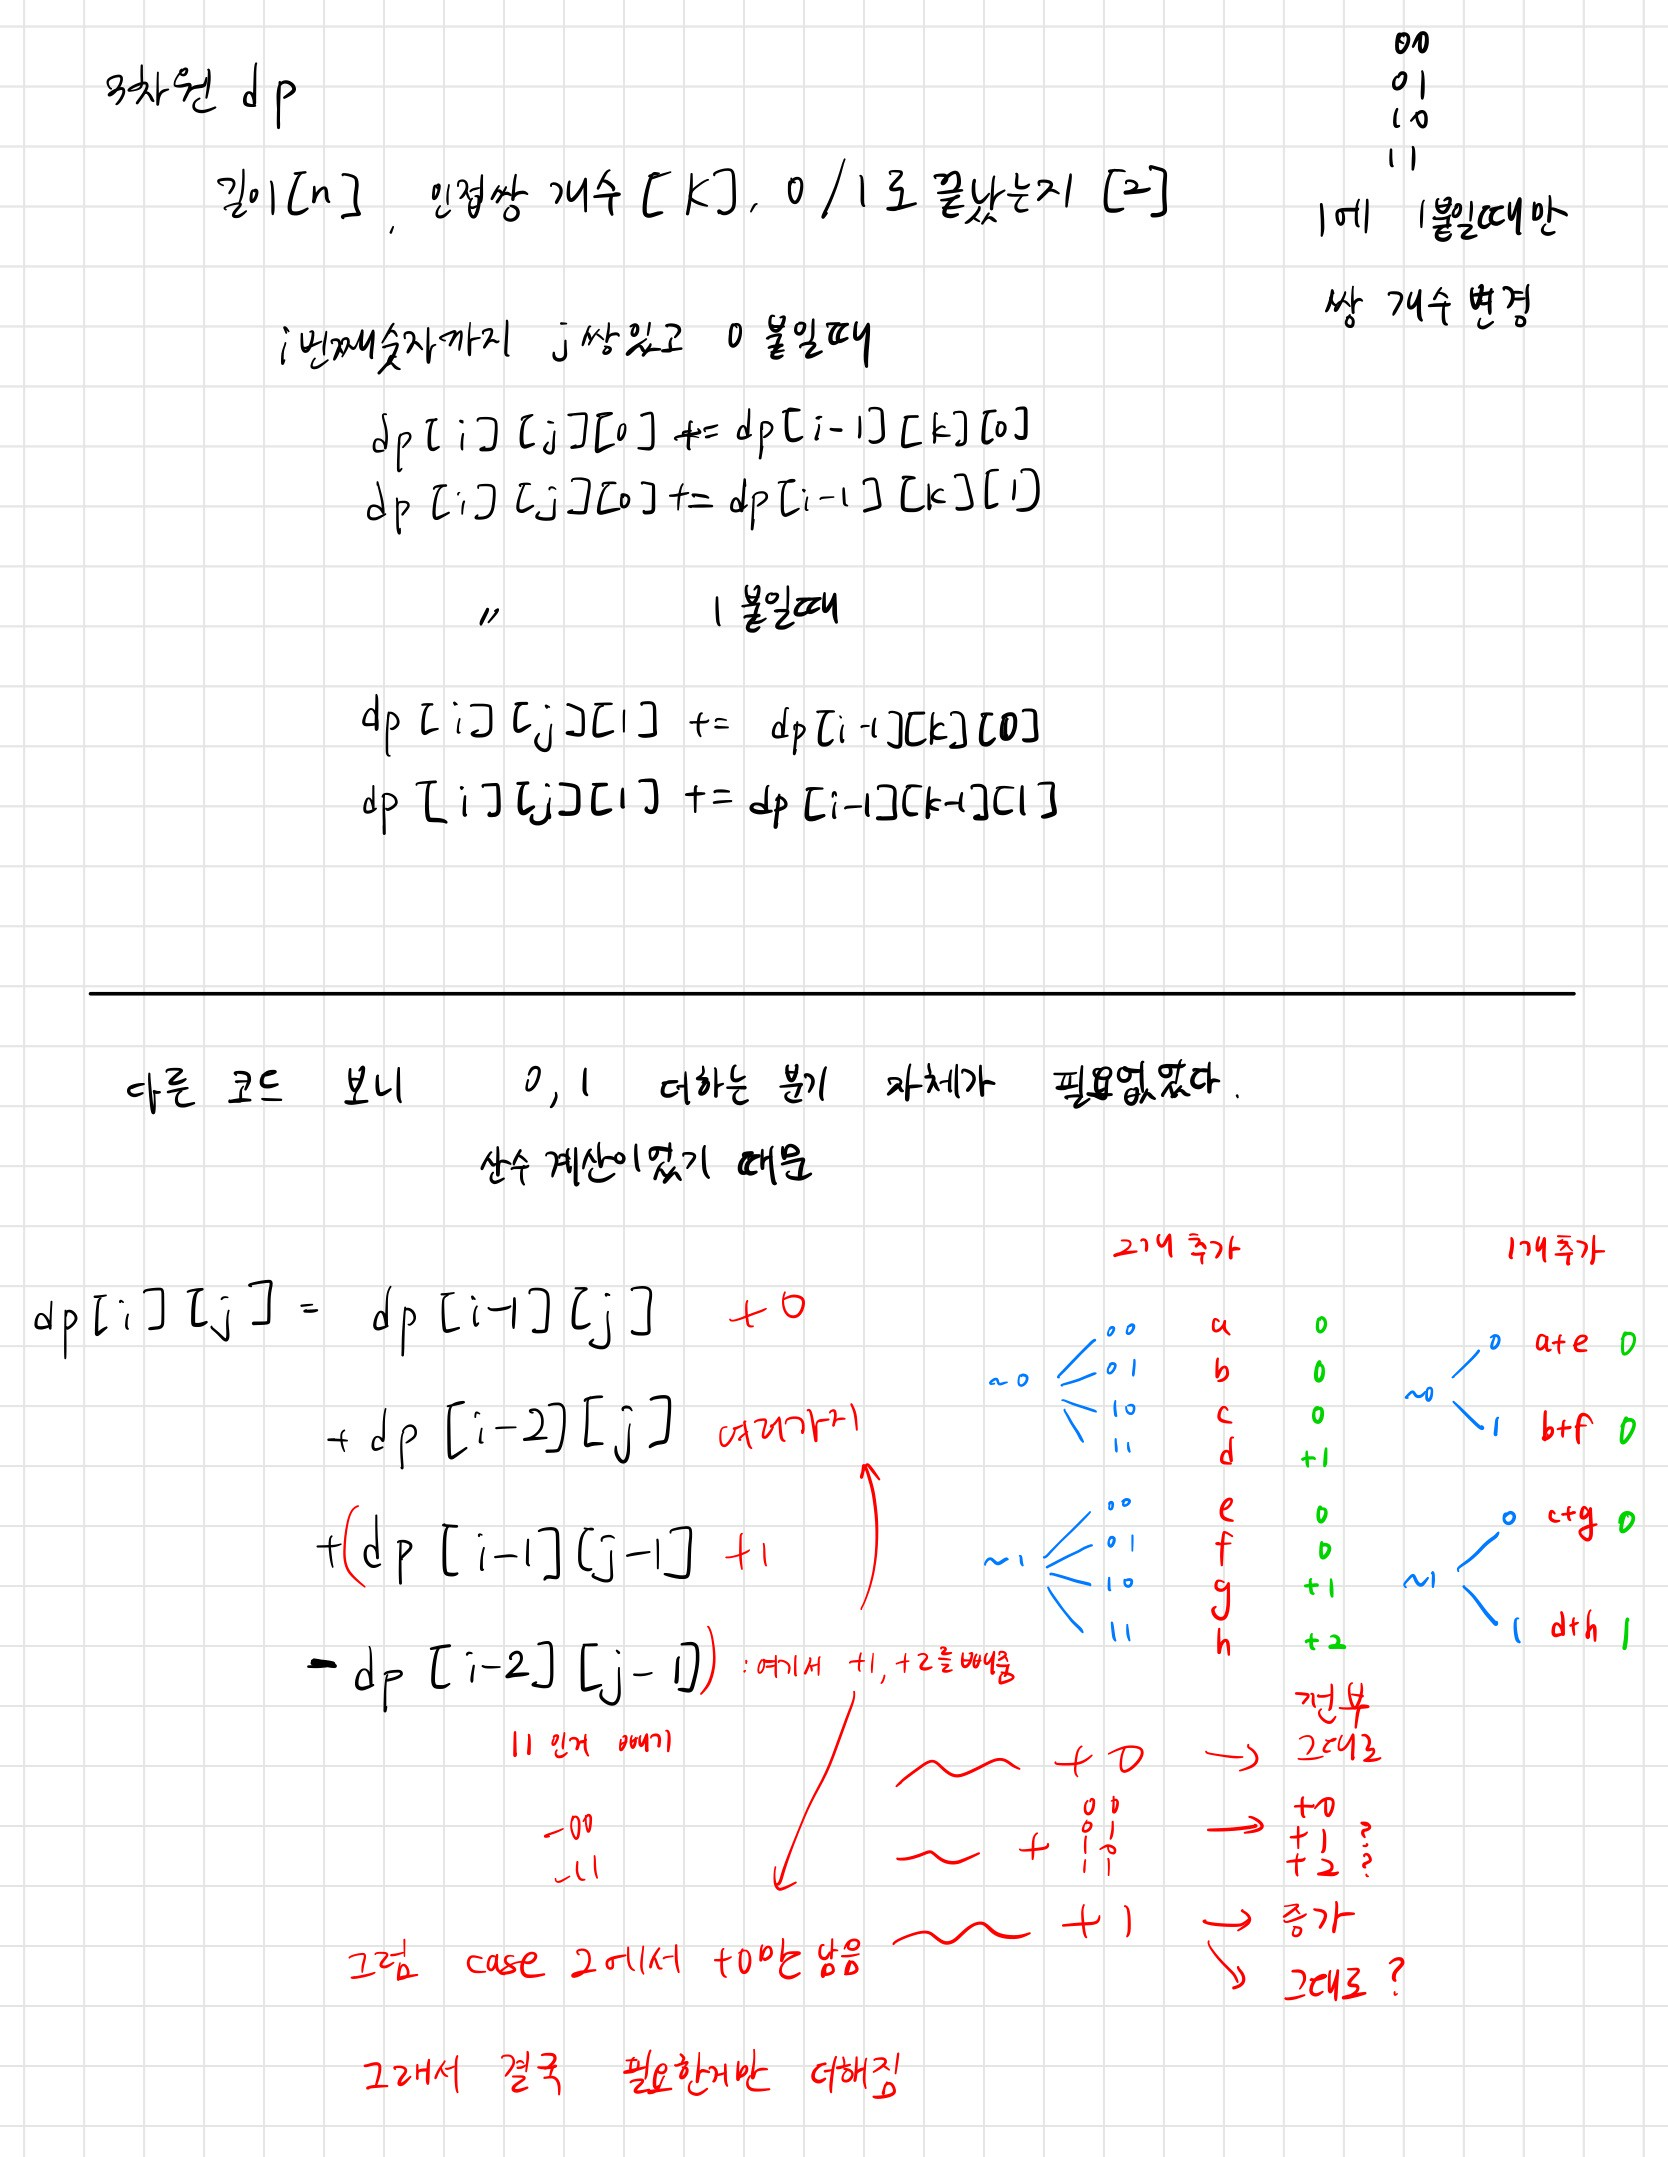 3차원 dp
00
01
10
11
길이[n], 인접쌍 개수[K], 0/1로 끝났는지 [2]
1에 1붙일때만
쌍 개수 변경
i번째숫자까지 j쌍있고 0 붙일때
dp[i][j][0] += dp[i-1][k][0]
dp[i][j][0] += dp[i-1][k][1]
〃 1 붙일때
dp[i][j][1] += dp[i-1][k][0]
dp[i][j][1] += dp[i-1][k-1][1]
다른 코드 보니 0, 1 더하는 분기 자체가 필요없었다.
산수 계산이었기 때문
dp[i][j] = dp[i-1][j] +0
+ dp[i-2][j] 여러가지
+(dp[i-1][j-1] +1
- dp[i-2][j-1]) : 여기서 +1, +2를 빼줌
11 인거 빼기
-00
-11
그럼 case 2에서 +0만 남음
그래서 결국 필요한거만 더해짐
2개 추가
~0
00 a 0
01 b 0
10 c 0
11 d +1
~1
00 e 0
01 f 0
10 g +1
11 h +2
1개 추가
~0
0 a+e 0
1 b+f 0
~1
0 c+g 0
1 d+h 1
전부
+0 → 그대로
00 +0
+ 01 → +1 ?
10 +2 ?
11
+1 → 증가
↘ 그대로?